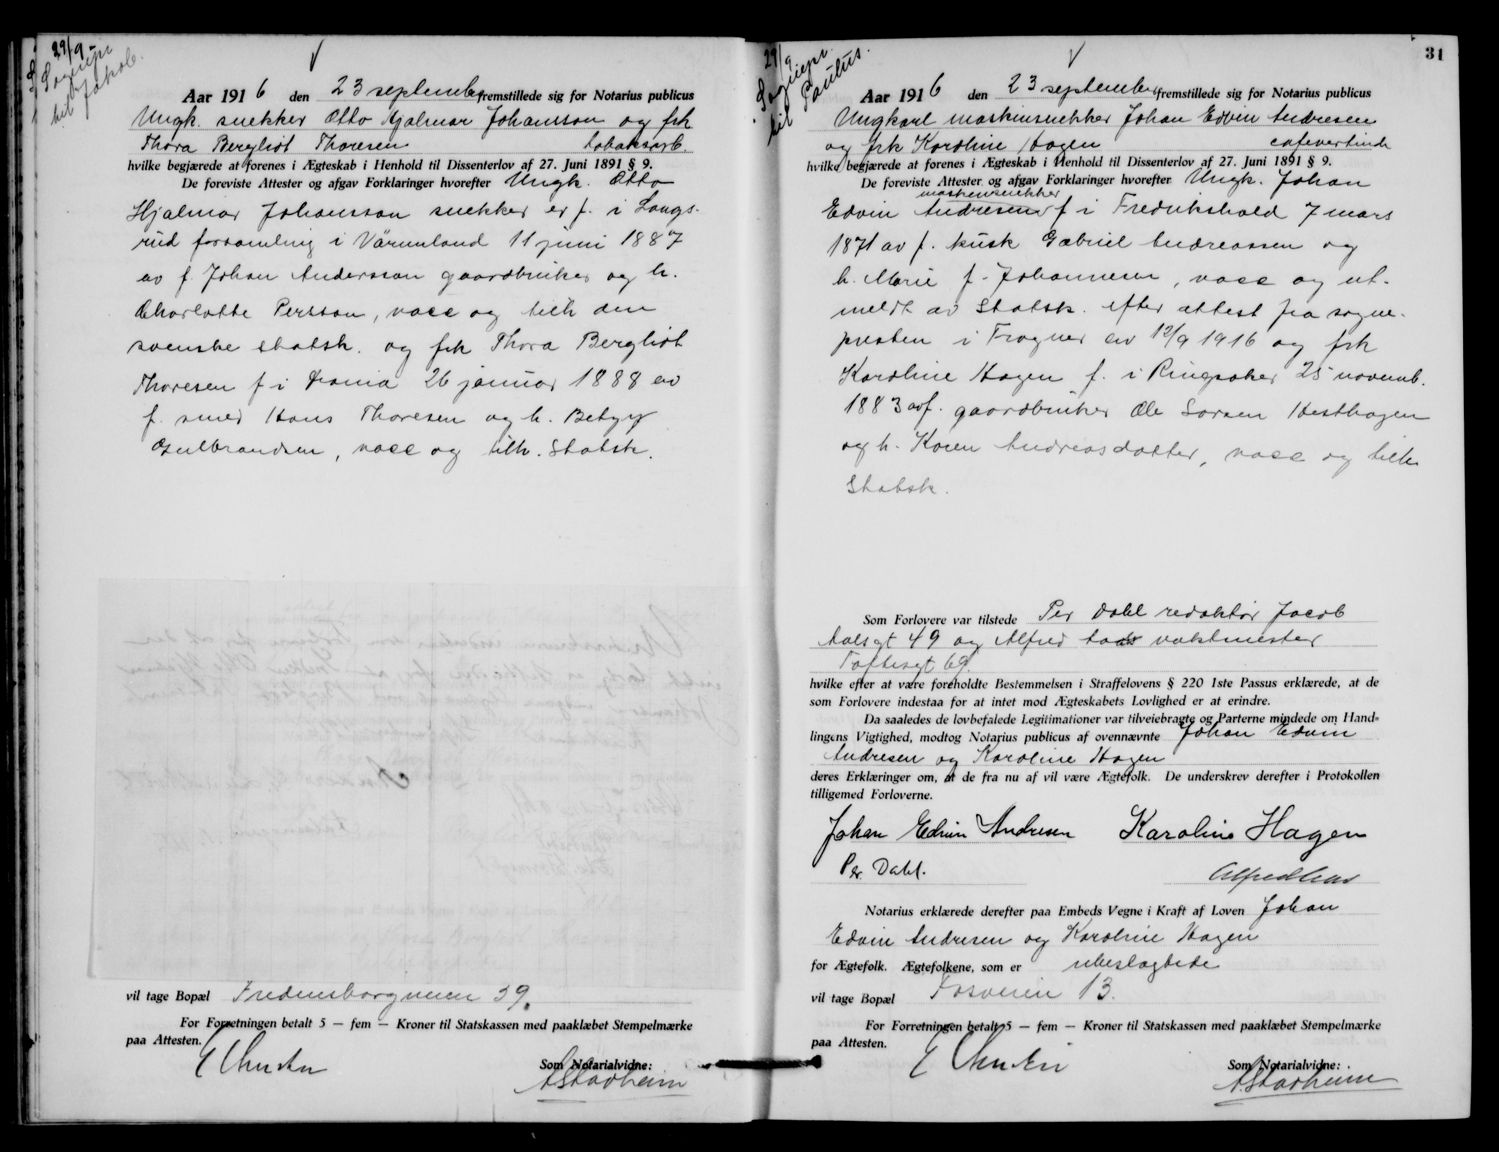 29/9
Sognepr
til Jakob.
Aar 1916 den 23 septemb fremstillede sig for Notarius publicus
Ungk. snekker Otto Hjalmar Johansson og frk
Thora Bergliot Thoresen tobaksarb.
hvilke begjærede at forenes i Ægteskab i Henhold til Dissenterlov af 27. Juni 1891 § 9.
De foreviste Attester og afgav Forklaringer hvorefter Ungk. Otto
Hjalmar Johansson snekker er f. i Langs-
rud forsamling i Värmland 11 juni 1887
av f. Johan Andersson gaardbruker og h.
Charlotte Persson, vacc og tilh den
svenske statsk. og frk Thora Bergliot
Thoresen f i Krania 26 januar 1888 av
f. smed Hans Thoresen og h. Betzy
Gulbrandsen, vacc og tilh. Statsk.
vil tage Bopæl Fredensborgveien 39.
For Forretningen betalt 5 — fem — Kroner til Statskassen med paaklæbet Stempelmærke
paa Attesten.
Som Notarialvidne:
AStadheim
31
29/9
Sognepr.
til Paulus.
Aar 1916 den 23 septemb fremstillede sig for Notarius publicus
Ungkarl maskinsnekker Johan Edvin Andresen
og frk Karoline Hagen cafevertinde
hvilke begjærede at forenes i Ægteskab i Henhold til Dissenterlov af 27. Juni 1891 § 9.
De foreviste Attester og afgav Forklaringer hvorefter Ungk. Johan
maskinsnekker
Edvin Andresen f i Fredrikshald 7 mars
1871 av f. kusk Gabriel Andreassen og
h. Marie f. Johannesen, vacc og ut-
meldt av Statsk. efter attest fra sogne-
presten i Frogner av 12/9 1916 og frk
Karoline Hagen f. i Ringsaker 25 novemb.
1883 av f. gaardbruker Ole Larsen Hesthagen
og h. Karen Andreasdatter, vacc og tilh
Statsk.
Som Forlovere var tilstede Per Dahl redaktør Jacob
Aalsgt 49 og Alfred vaktmester
Toftesgt 69.
hvilke efter at være foreholdte Bestemmelsen i Straffelovens § 220 1ste Passus erklærede, at de
som Forlovere indestaa for at intet mod Ægteskabets Lovlighed er at erindre.
Da saaledes de lovbefalede Legitimationer var tilveiebragte og Parterne mindede om Hand-
lingens Vigtighed, modtog Notarius publicus af ovennævnte Johan Edvin
Andresen og Karoline Hagen
deres Erklæringer om, at de fra nu af vil være Ægtefolk. De underskrev derefter i Protokollen
tilligemed Forloverne.
Johan Edvin Andresen Karoline Hagen
Per Dahl. Alfred
Notarius erklærede derefter paa Embeds Vegne i Kraft af Loven Johan
Edvin Andresen og Karoline Hagen
for Ægtefolk. Ægtefolkene, som er ubeslægtede
vil tage Bopæl Fosveien 13.
For Forretningen betalt 5 — fem — Kroner til Statskassen med paaklæbet Stempelmærke
paa Attesten.
Som Notarialvidne:
AStadheim